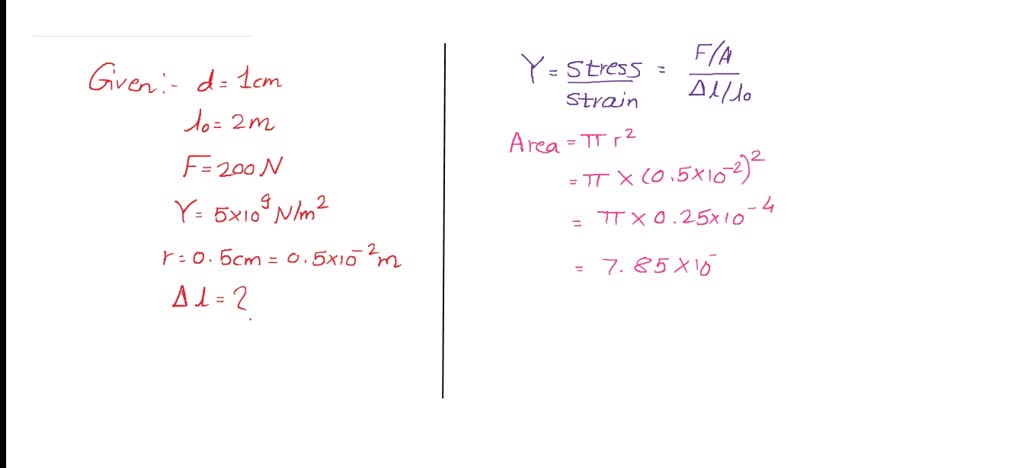 Given:- d = 1cm
l₀ = 2m
F = 200 N
Y = 5×10⁹ N/m²
r = 0.5cm = 0.5×10⁻²m
Δl = ?
Y = Stress/Strain = (F/A)/(Δl/l₀)
Area = π r²
= π × (0.5×10⁻²)²
= π × 0.25×10⁻⁴
= 7.85×10⁻